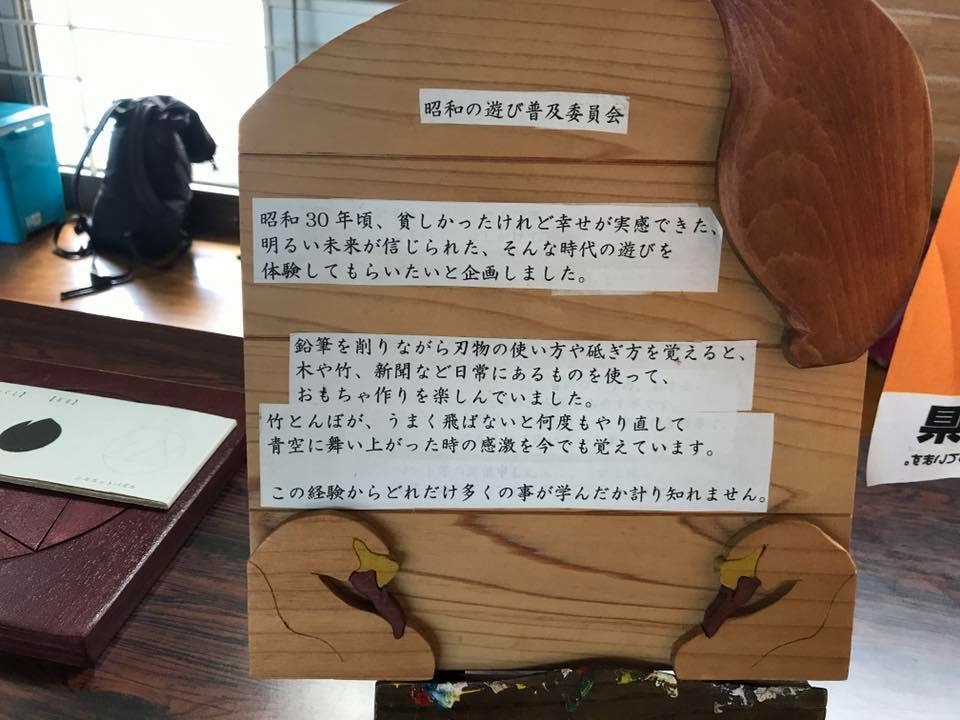 昭和の遊び普及委員会
昭和30年頃、貧しかったけれど幸せが実感できた、
明るい未来が信じられた、そんな時代の遊びを
体験してもらいたいと企画しました。
鉛筆を削りながら刃物の使い方や砥ぎ方を覚えると、
木や竹、新聞など日常にあるものを使って、
おもちゃ作りを楽しんでいました。
竹とんぼが、うまく飛ばないと何度もやり直して
青空に舞い上がった時の感激を今でも覚えています。
この経験からどれだけ多くの事が学んだか計り知れません。